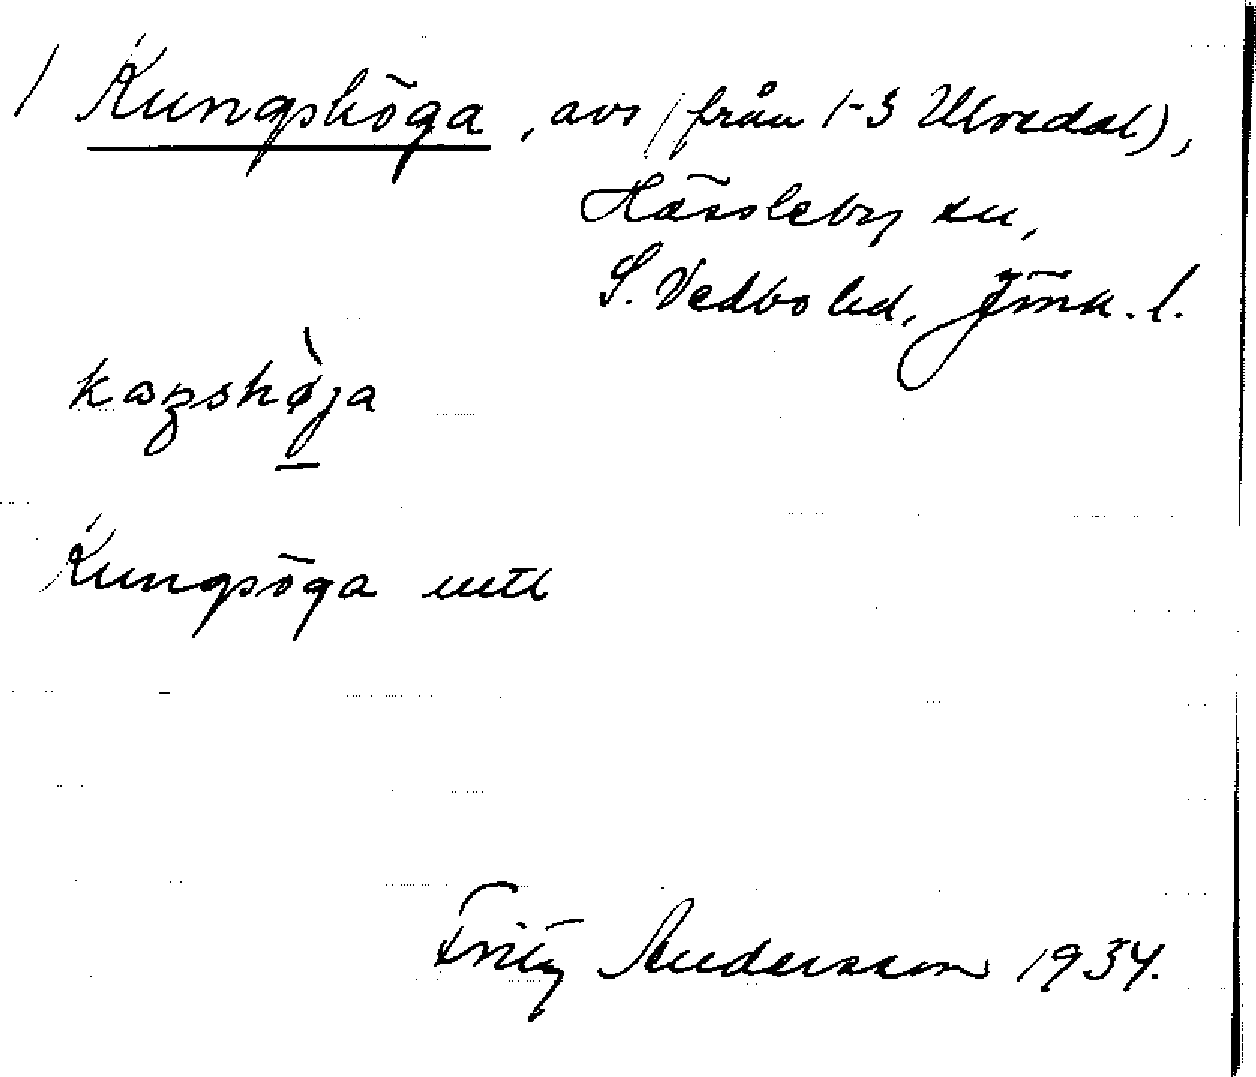 / Kungshöga, avs (från 1-3 Ulvedal),
Hässleby sn,
S. Vedbo hd, Jönk. l.
Kungsöga uttl
Fritz Andersson 1934.